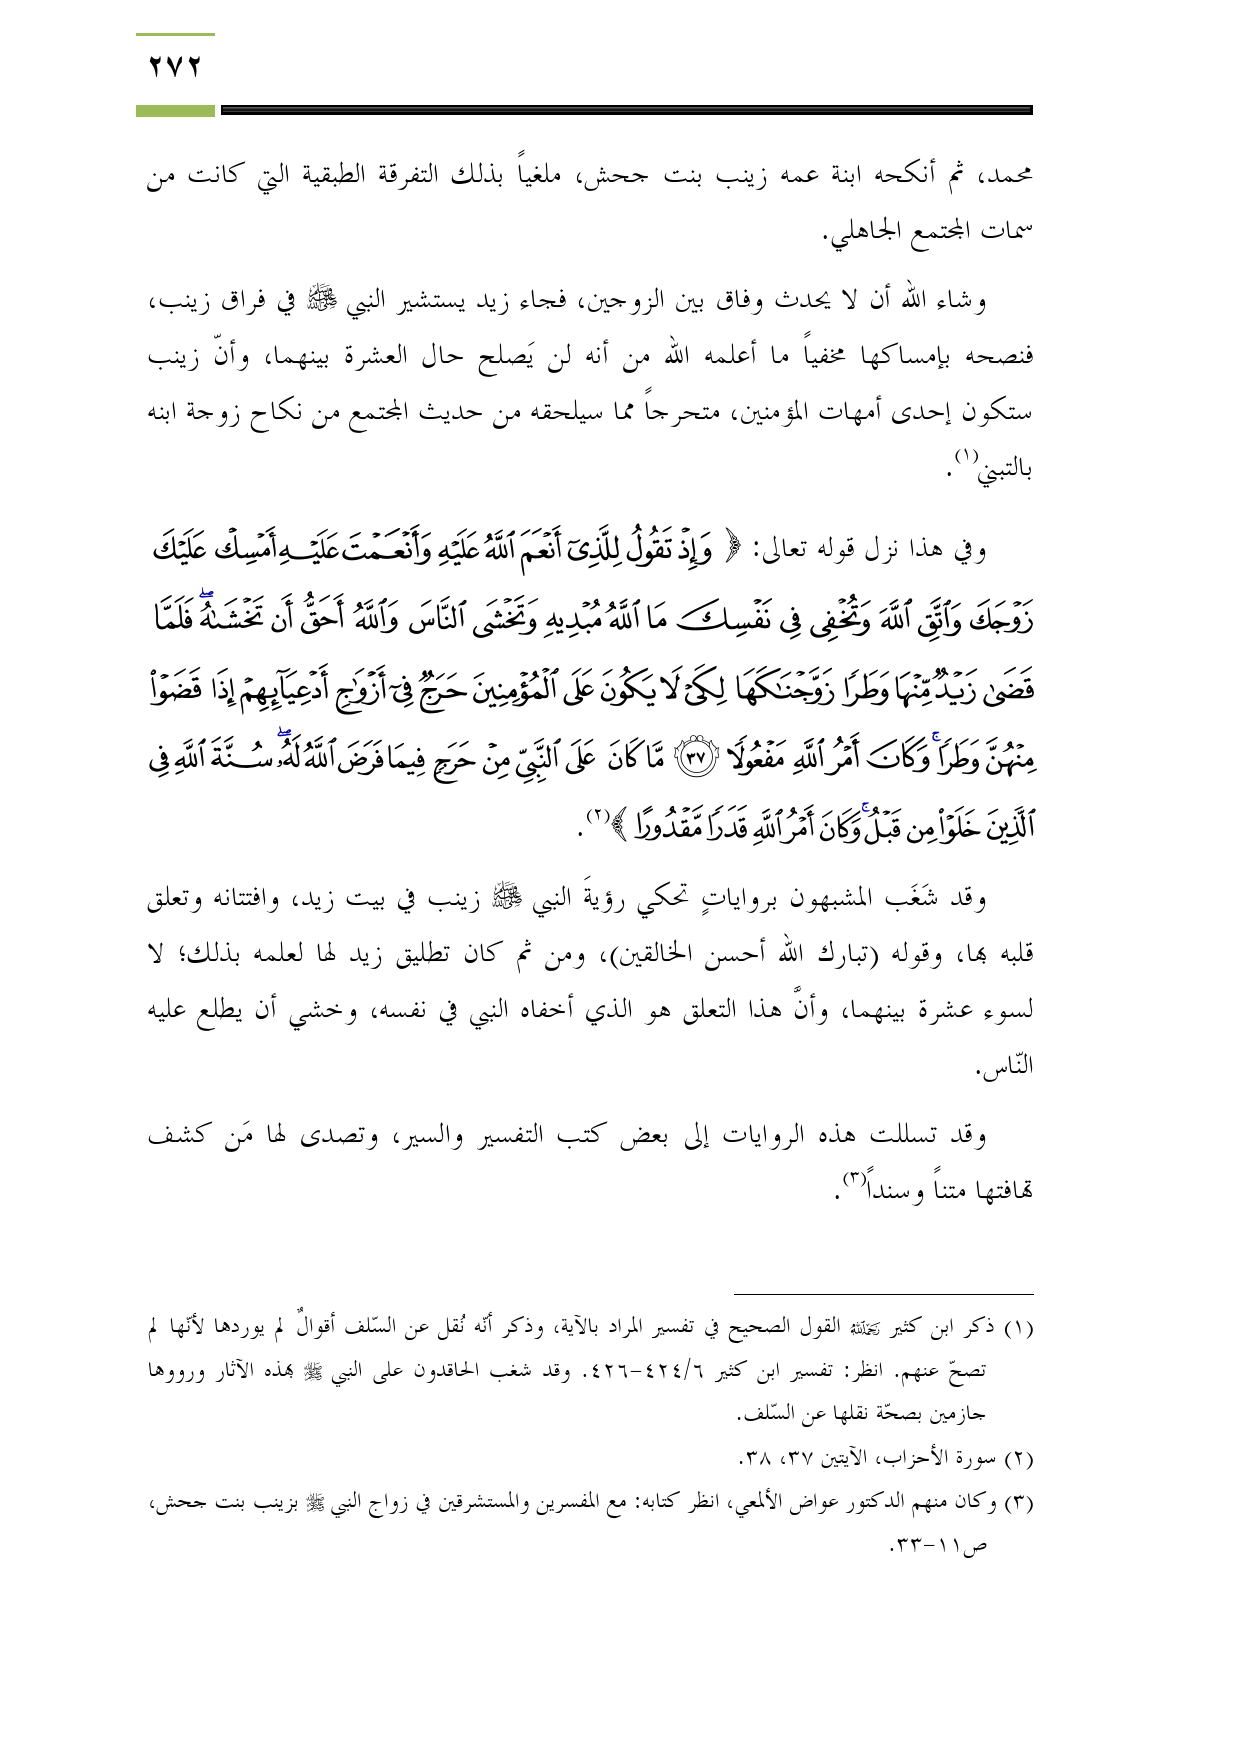 ٢٧٢
محمد، ثم أنكحه ابنة عمه زينب بنت جحش، ملغياً بذلك التفرقة الطبقية التي كانت من
سمات المجتمع الجاهلي.
وشاء الله أن لا يحدث وفاق بين الزوجين، فجاء زيد يستشير النبي ﷺ في فراق زينب،
فنصحه بإمساكها مخفياً ما أعلمه الله من أنه لن يَصلح حال العشرة بينهما، وأنّ زينب
ستكون إحدى أمهات المؤمنين، متحرجاً مما سيلحقه من حديث المجتمع من نكاح زوجة ابنه
بالتبني(١).
وفي هذا نزل قوله تعالى: ﴿ وَإِذْ تَقُولُ لِلَّذِىٓ أَنْعَمَ ٱللَّهُ عَلَيْهِ وَأَنْعَمْتَ عَلَيْهِ أَمْسِكْ عَلَيْكَ
زَوْجَكَ وَٱتَّقِ ٱللَّهَ وَتُخْفِى فِى نَفْسِكَ مَا ٱللَّهُ مُبْدِيهِ وَتَخْشَى ٱلنَّاسَ وَٱللَّهُ أَحَقُّ أَن تَخْشَىٰهُ ۖ فَلَمَّا
قَضَىٰ زَيْدٌ مِّنْهَا وَطَرًا زَوَّجْنَٰكَهَا لِكَىْ لَا يَكُونَ عَلَى ٱلْمُؤْمِنِينَ حَرَجٌ فِىٓ أَزْوَٰجِ أَدْعِيَآئِهِمْ إِذَا قَضَوْا۟
مِنْهُنَّ وَطَرًا ۚ وَكَانَ أَمْرُ ٱللَّهِ مَفْعُولًا ﴿٣٧﴾ مَّا كَانَ عَلَى ٱلنَّبِىِّ مِنْ حَرَجٍ فِيمَا فَرَضَ ٱللَّهُ لَهُۥ ۖ سُنَّةَ ٱللَّهِ فِى
ٱلَّذِينَ خَلَوْا۟ مِن قَبْلُ ۚ وَكَانَ أَمْرُ ٱللَّهِ قَدَرًا مَّقْدُورًا ﴾(٢).
وقد شَغَب المشبهون برواياتٍ تحكي رؤيةَ النبي ﷺ زينب في بيت زيد، وافتتانه وتعلق
قلبه بها، وقوله (تبارك الله أحسن الخالقين)، ومن ثم كان تطليق زيد لها لعلمه بذلك؛ لا
لسوء عشرة بينهما، وأنَّ هذا التعلق هو الذي أخفاه النبي في نفسه، وخشي أن يطلع عليه
النّاس.
وقد تسللت هذه الروايات إلى بعض كتب التفسير والسير، وتصدى لها مَن كشف
تهافتها متناً وسنداً(٣).
(١) ذكر ابن كثير رَحِمَهُ ٱللَّهُ القول الصحيح في تفسير المراد بالآية، وذكر أنّه نُقل عن السّلف أقوالٌ لم يوردها لأنّها لم
تصحّ عنهم. انظر: تفسير ابن كثير ٤٢٤/٦-٤٢٦. وقد شغب الحاقدون على النبي ﷺ بهذه الآثار ورووها
جازمين بصحّة نقلها عن السّلف.
(٢) سورة الأحزاب، الآيتين ٣٧، ٣٨.
(٣) وكان منهم الدكتور عواض الألمعي، انظر كتابه: مع المفسرين والمستشرقين في زواج النبي ﷺ بزينب بنت جحش،
ص١١-٣٣.